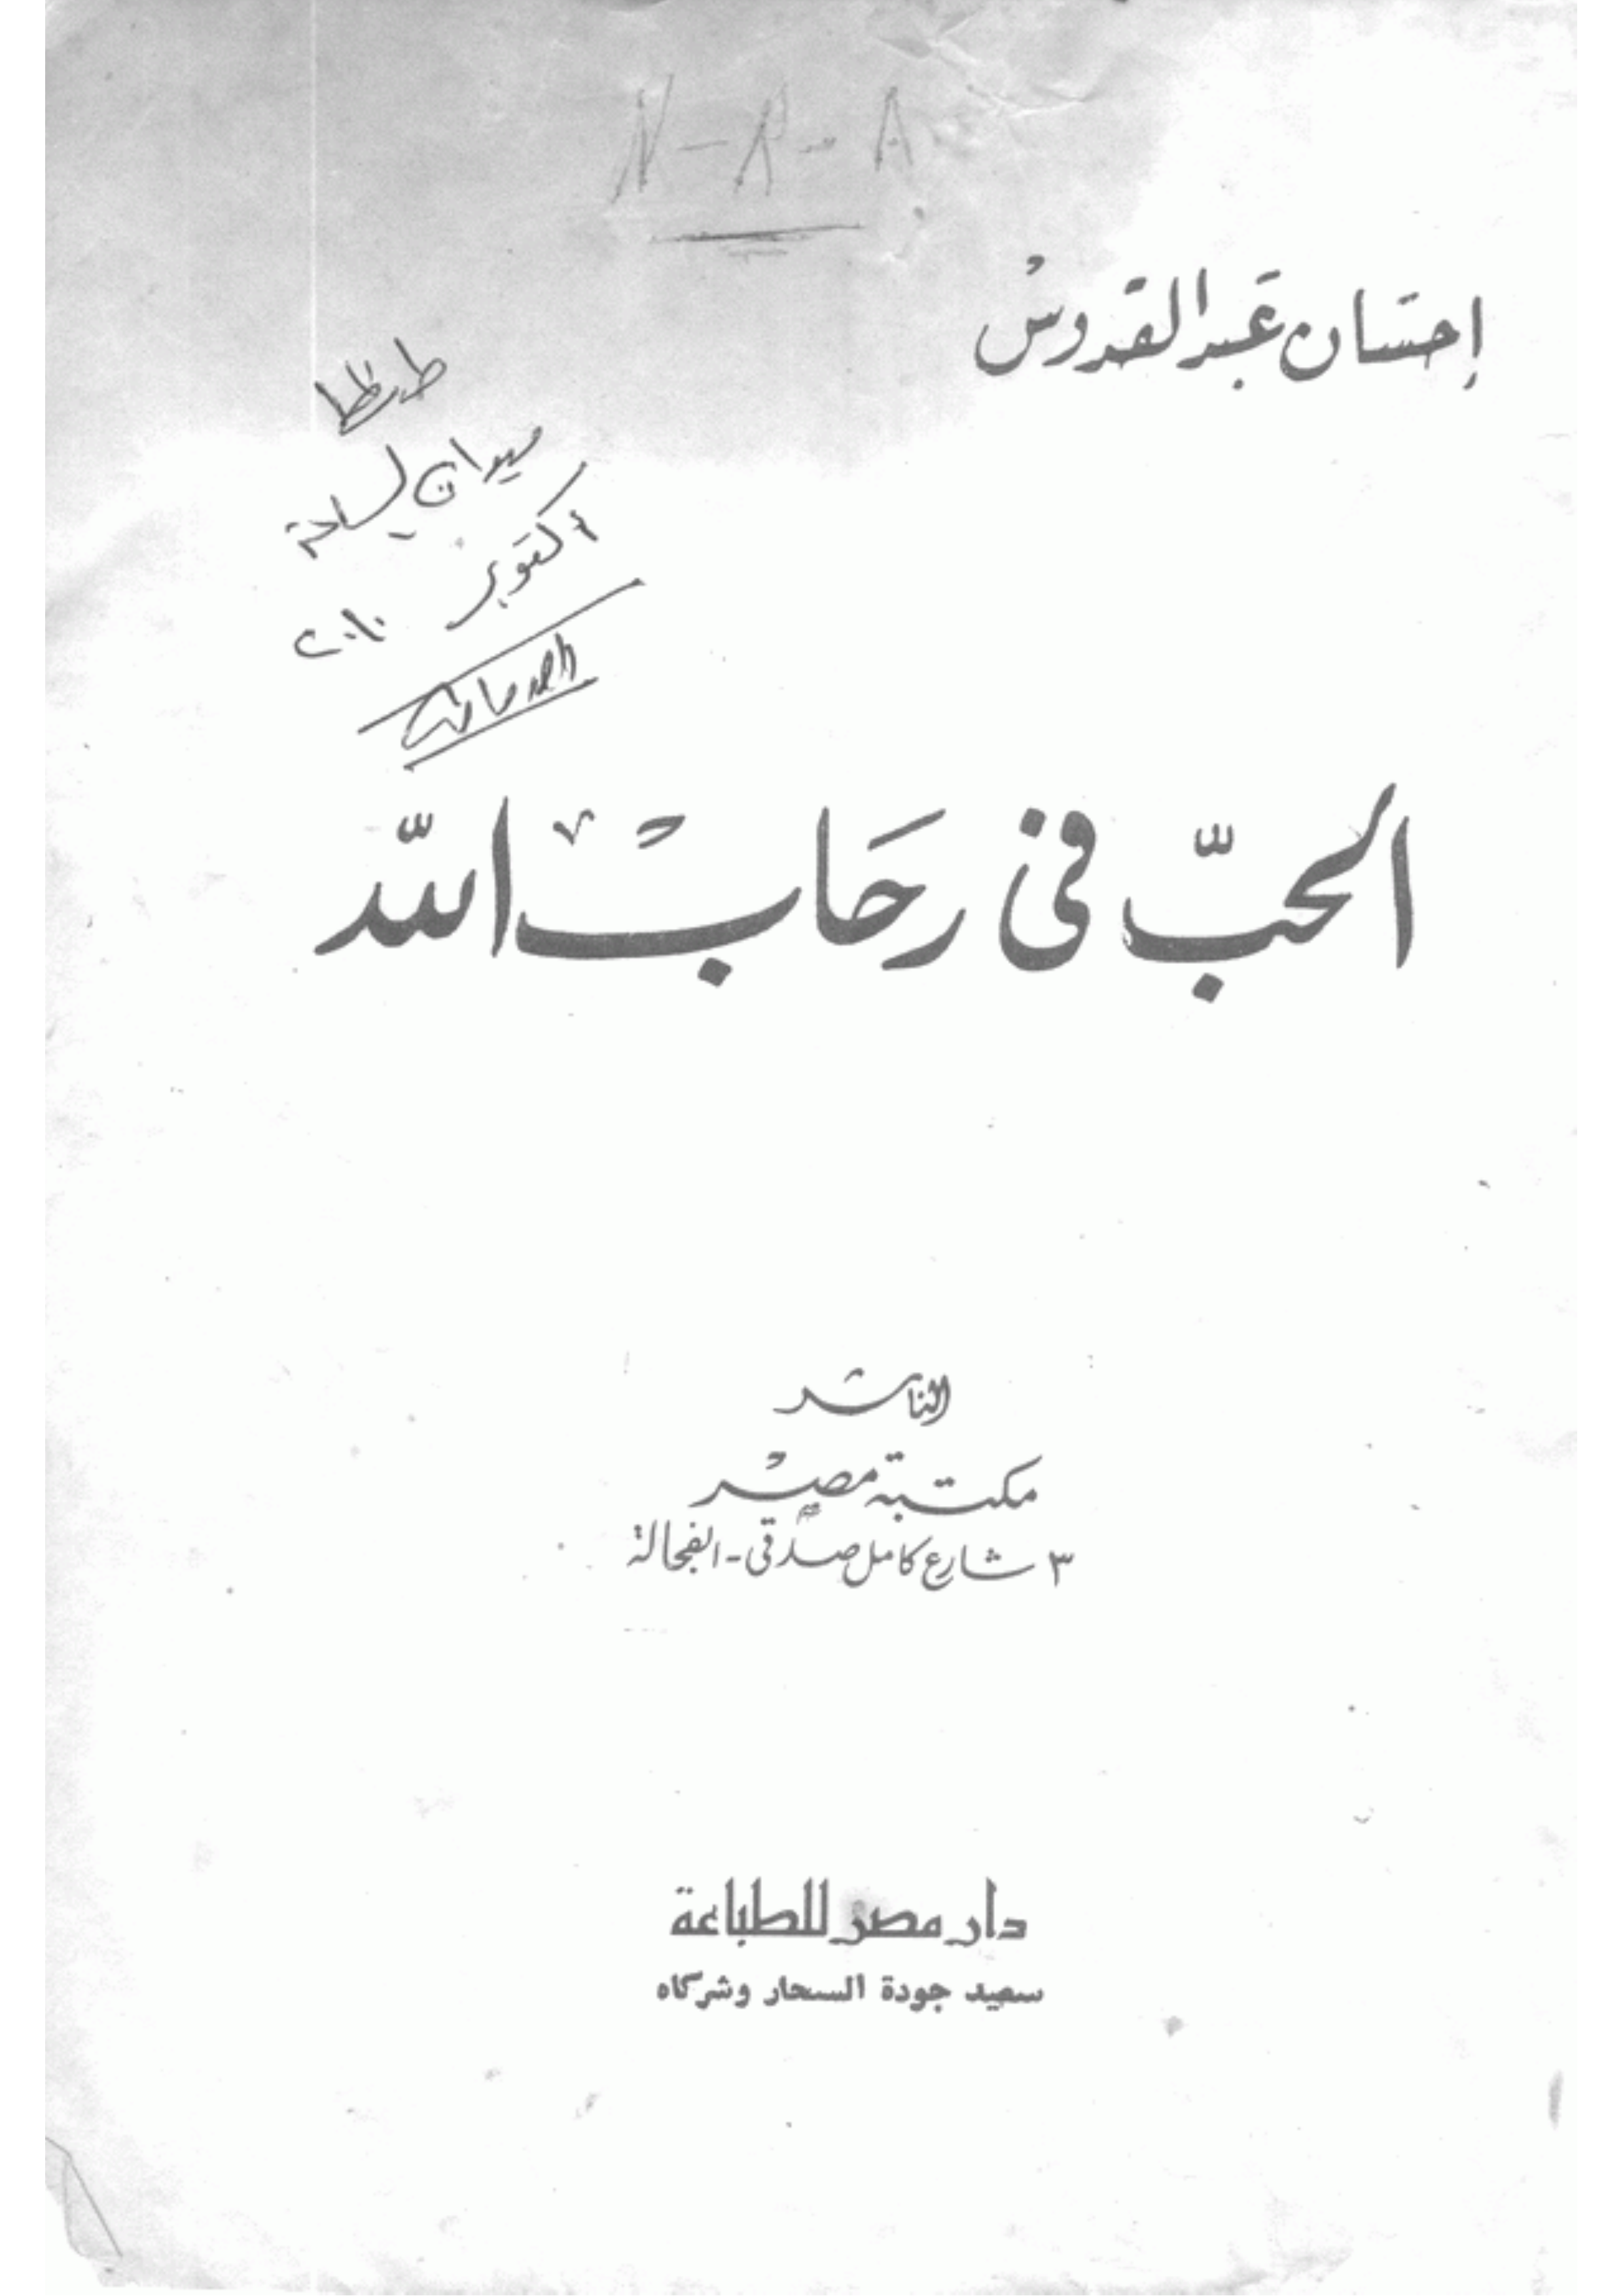 N-R-A
إحسان عبد القدوس
طنطا
ميدان الساعة
أكتوبر ٢٠١٠
الحبّ في رحاب الله
الناشر
مكتبة مصر
٣ شارع كامل صدقى - الفجالة
دار مصر للطباعة
سعيد جودة السحار وشركاه